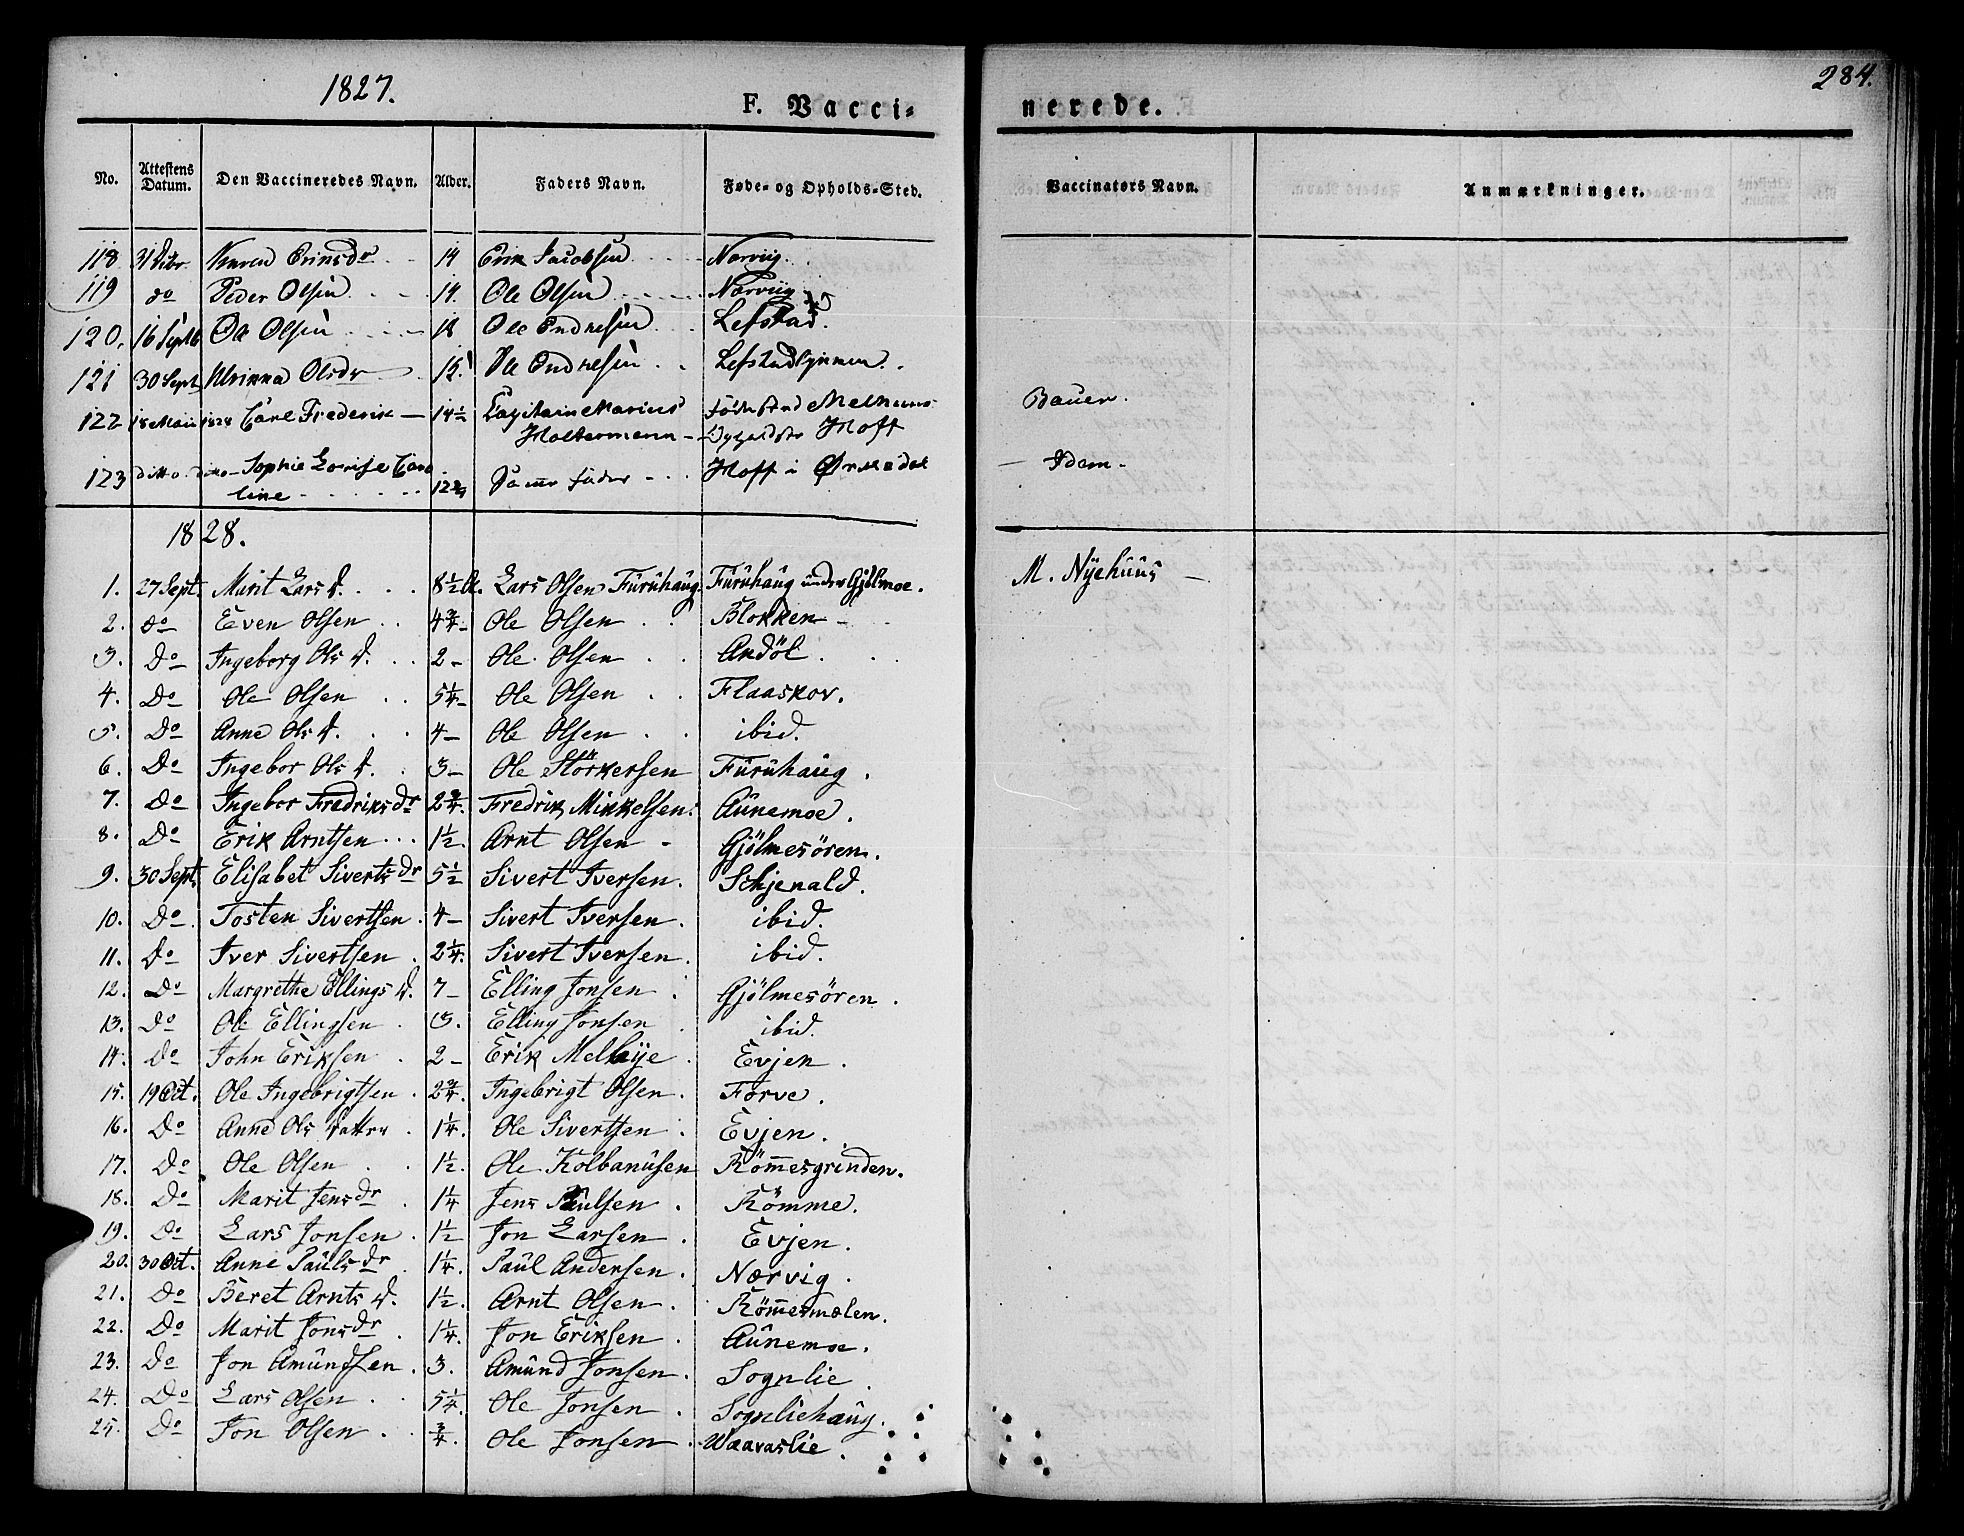 1827.
284.
F. Vacci-
nerede.
No. Attestens Datum. Den Vaccineredes Navn. Alder. Faders Navn. Føde- og Opholds-Sted. Vaccinators Navn. Anmærkninger.
118 Karen 14 Erik Jacobsen Narviig.
119 do Peder Olsen 14. Ole Olsen Nærviig
120. 16 Septb Ole Olsen 18 Ole Endresen Lefstad.
121 30 Sept. Olsdr 15 Ole Endresen
122 18 Maii 1828 Carl Frederik 14½ Capitain Marius Fødested Melhuus Bauer.
Holtermann Hoff
123 ditto ditto Sophie Lovise Caro Samme Fader Hoff i Ørkedal Idem.
line
1828.
1. 27 Sept. Marit Lars D. 8½ A. Lars Olsen Furuhaug. Furuhaug under Gjølmoe. M. Nyehuus
2. do Even Olsen 4¾ Ole Olsen Blokken
3. Do Ingeborg Ols D. 2 Ole Olsen Andöl.
4. Do Ole Olsen 5¼ Ole Olsen Flaaskov.
5. Do Anne Ols D. 4 Ole Olsen ibid.
6. Do Ingebor Ols D. 3 Ole Störkersen Furuhaug.
7. Do Ingebor Fredriksdr 2¾. Fredrik Mikkelsen. Aunemoe.
8. Do Erik Arntsen 1½. Arnt Olsen Gjölmesören.
9. 30 Sept. Elisabet Sivertsdr 5½ Sivert Iversen. Schjenald.
10. Do Tosten Sivertsen 4 Sivert Iversen. ibid.
11. Do Iver Sivertsen 2¼. Sivert Iversen. ibid.
12. Do Margrethe Ellings D. 7 Elling Jonsen Gjölmesören.
13. Do Ole Ellingsen Elling Jonsen ibid.
14. Do John Eriksen 2 Erik Melbye Evjen.
15. 19 Oct. Ole Ingebrigtsen 2¾. Ingebrigt Olsen. Forve.
16. Do Anne Ols Datter 1¼. Ole Sivertsen Evjen.
17. Do Ole Olsen 1½. Ole Kolbanusen Römmesgrinden.
18. Do Marit Jensdr 1¼ Jens Paulsen. Römme.
19. Do Lars Jonsen. 1½ Jon Larsen. Evjen.
20. 30 Oct. Anne Paulsdr 1¼. Paul Andersen. Nærvig.
21. Do Beret Arnts D. 1½. Arnt Olsen. Römmesmælen.
22. Do Marit Jonsdr 1¼. Jon Eriksen. Aunemoe.
23. Do Jon Amundsen. 3. Amund Jonsen. Sognlie.
24. Do Lars Olsen 5¼. Ole Jonsen. Sognliehaug.
25. Do Jon Olsen ¾. Ole Jonsen. Waavaslie.